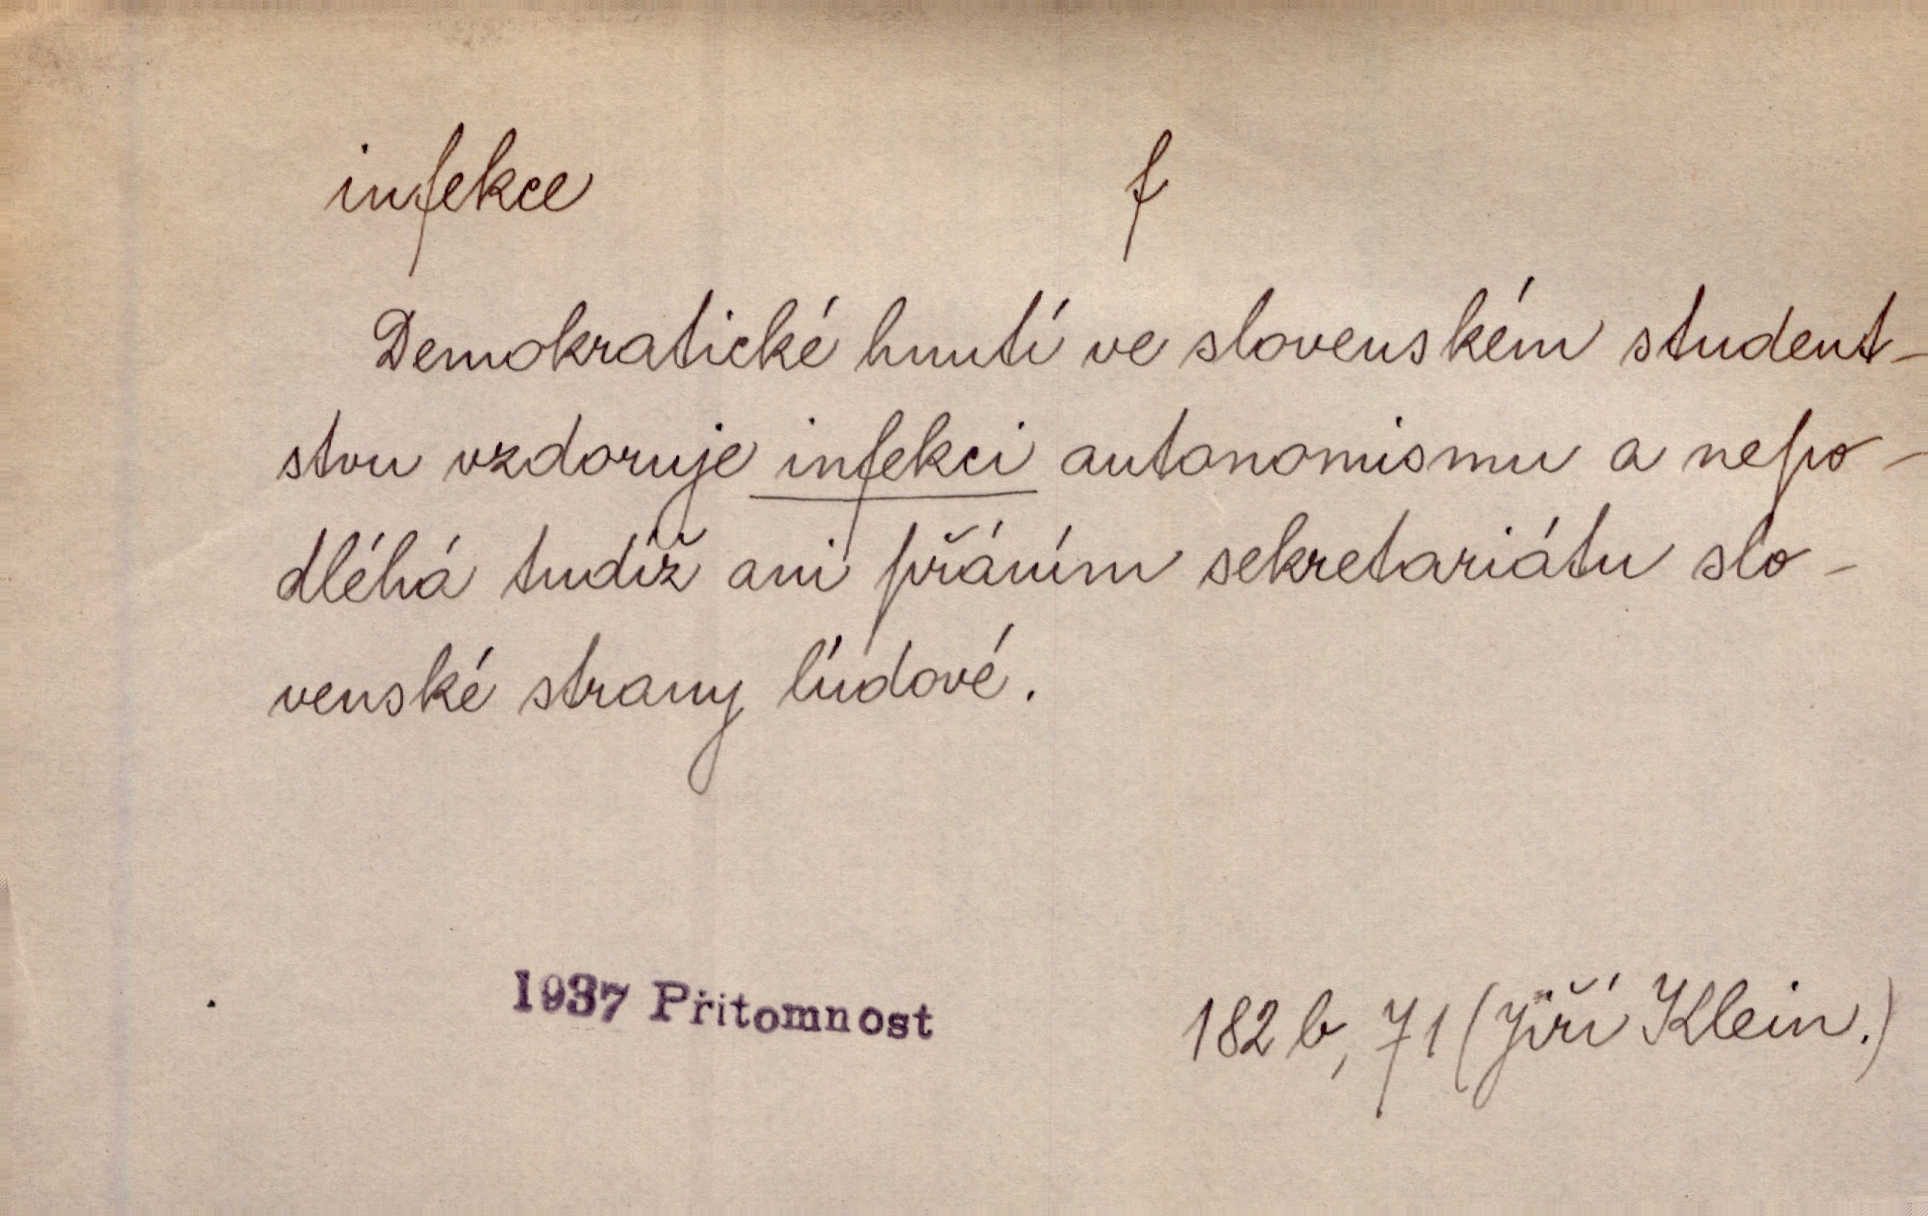 infekce f
Demokratické hnutí ve slovenském student-
stvu vzdoruje infekci autonomismu a nepo-
dléhá tudíž ani přáním sekretariátu slo-
venské strany lúdové.
1937 Přítomnost 182 b, 71 (Jiří Klein.)